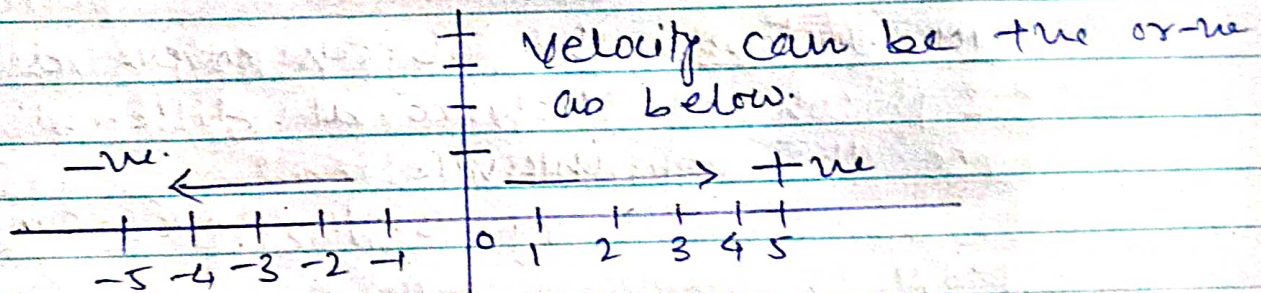 Velocity can be +ve or -ve
as below.
-ve. +ve
-5 -4 -3 -2 -1 0 1 2 3 4 5